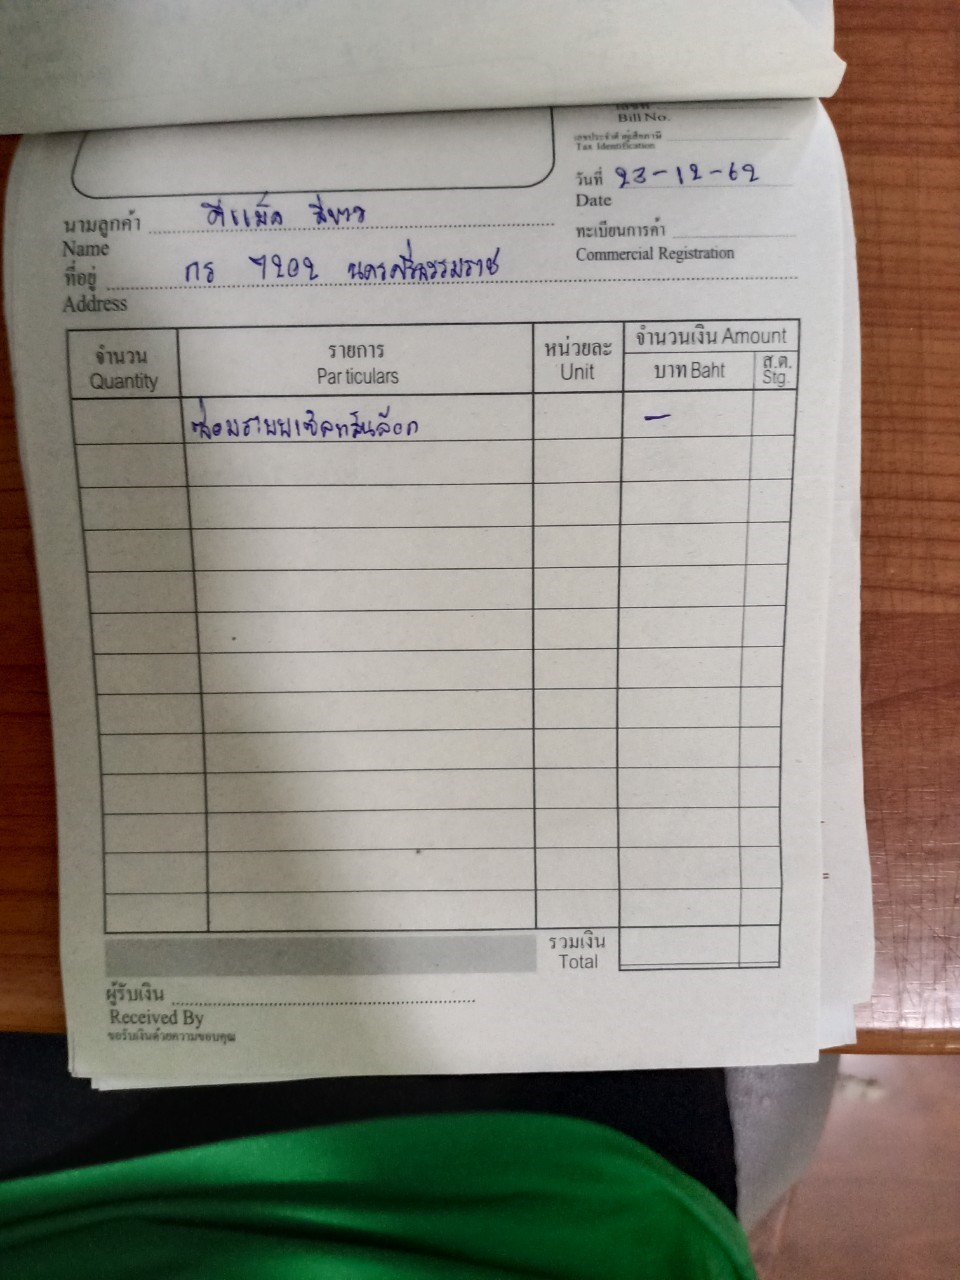 เลขที่
Bill No.
เลขประจำตัวผู้เสียภาษี
Tax Identification
วันที่ 23-12-62
Date
นามลูกค้า ดีแม็ค สีขาว
Name
ทะเบียนการค้า
Commercial Registration
ที่อยู่ กร 7202 นครศรีธรรมราช
Address
จำนวน
Quantity
รายการ
Particulars
หน่วยละ
Unit
จำนวนเงิน Amount
บาท Baht
ส.ต.
Stg.
ซ่อม
–
รวมเงิน
Total
ผู้รับเงิน
Received By
ขอรับเงินด้วยความขอบคุณ